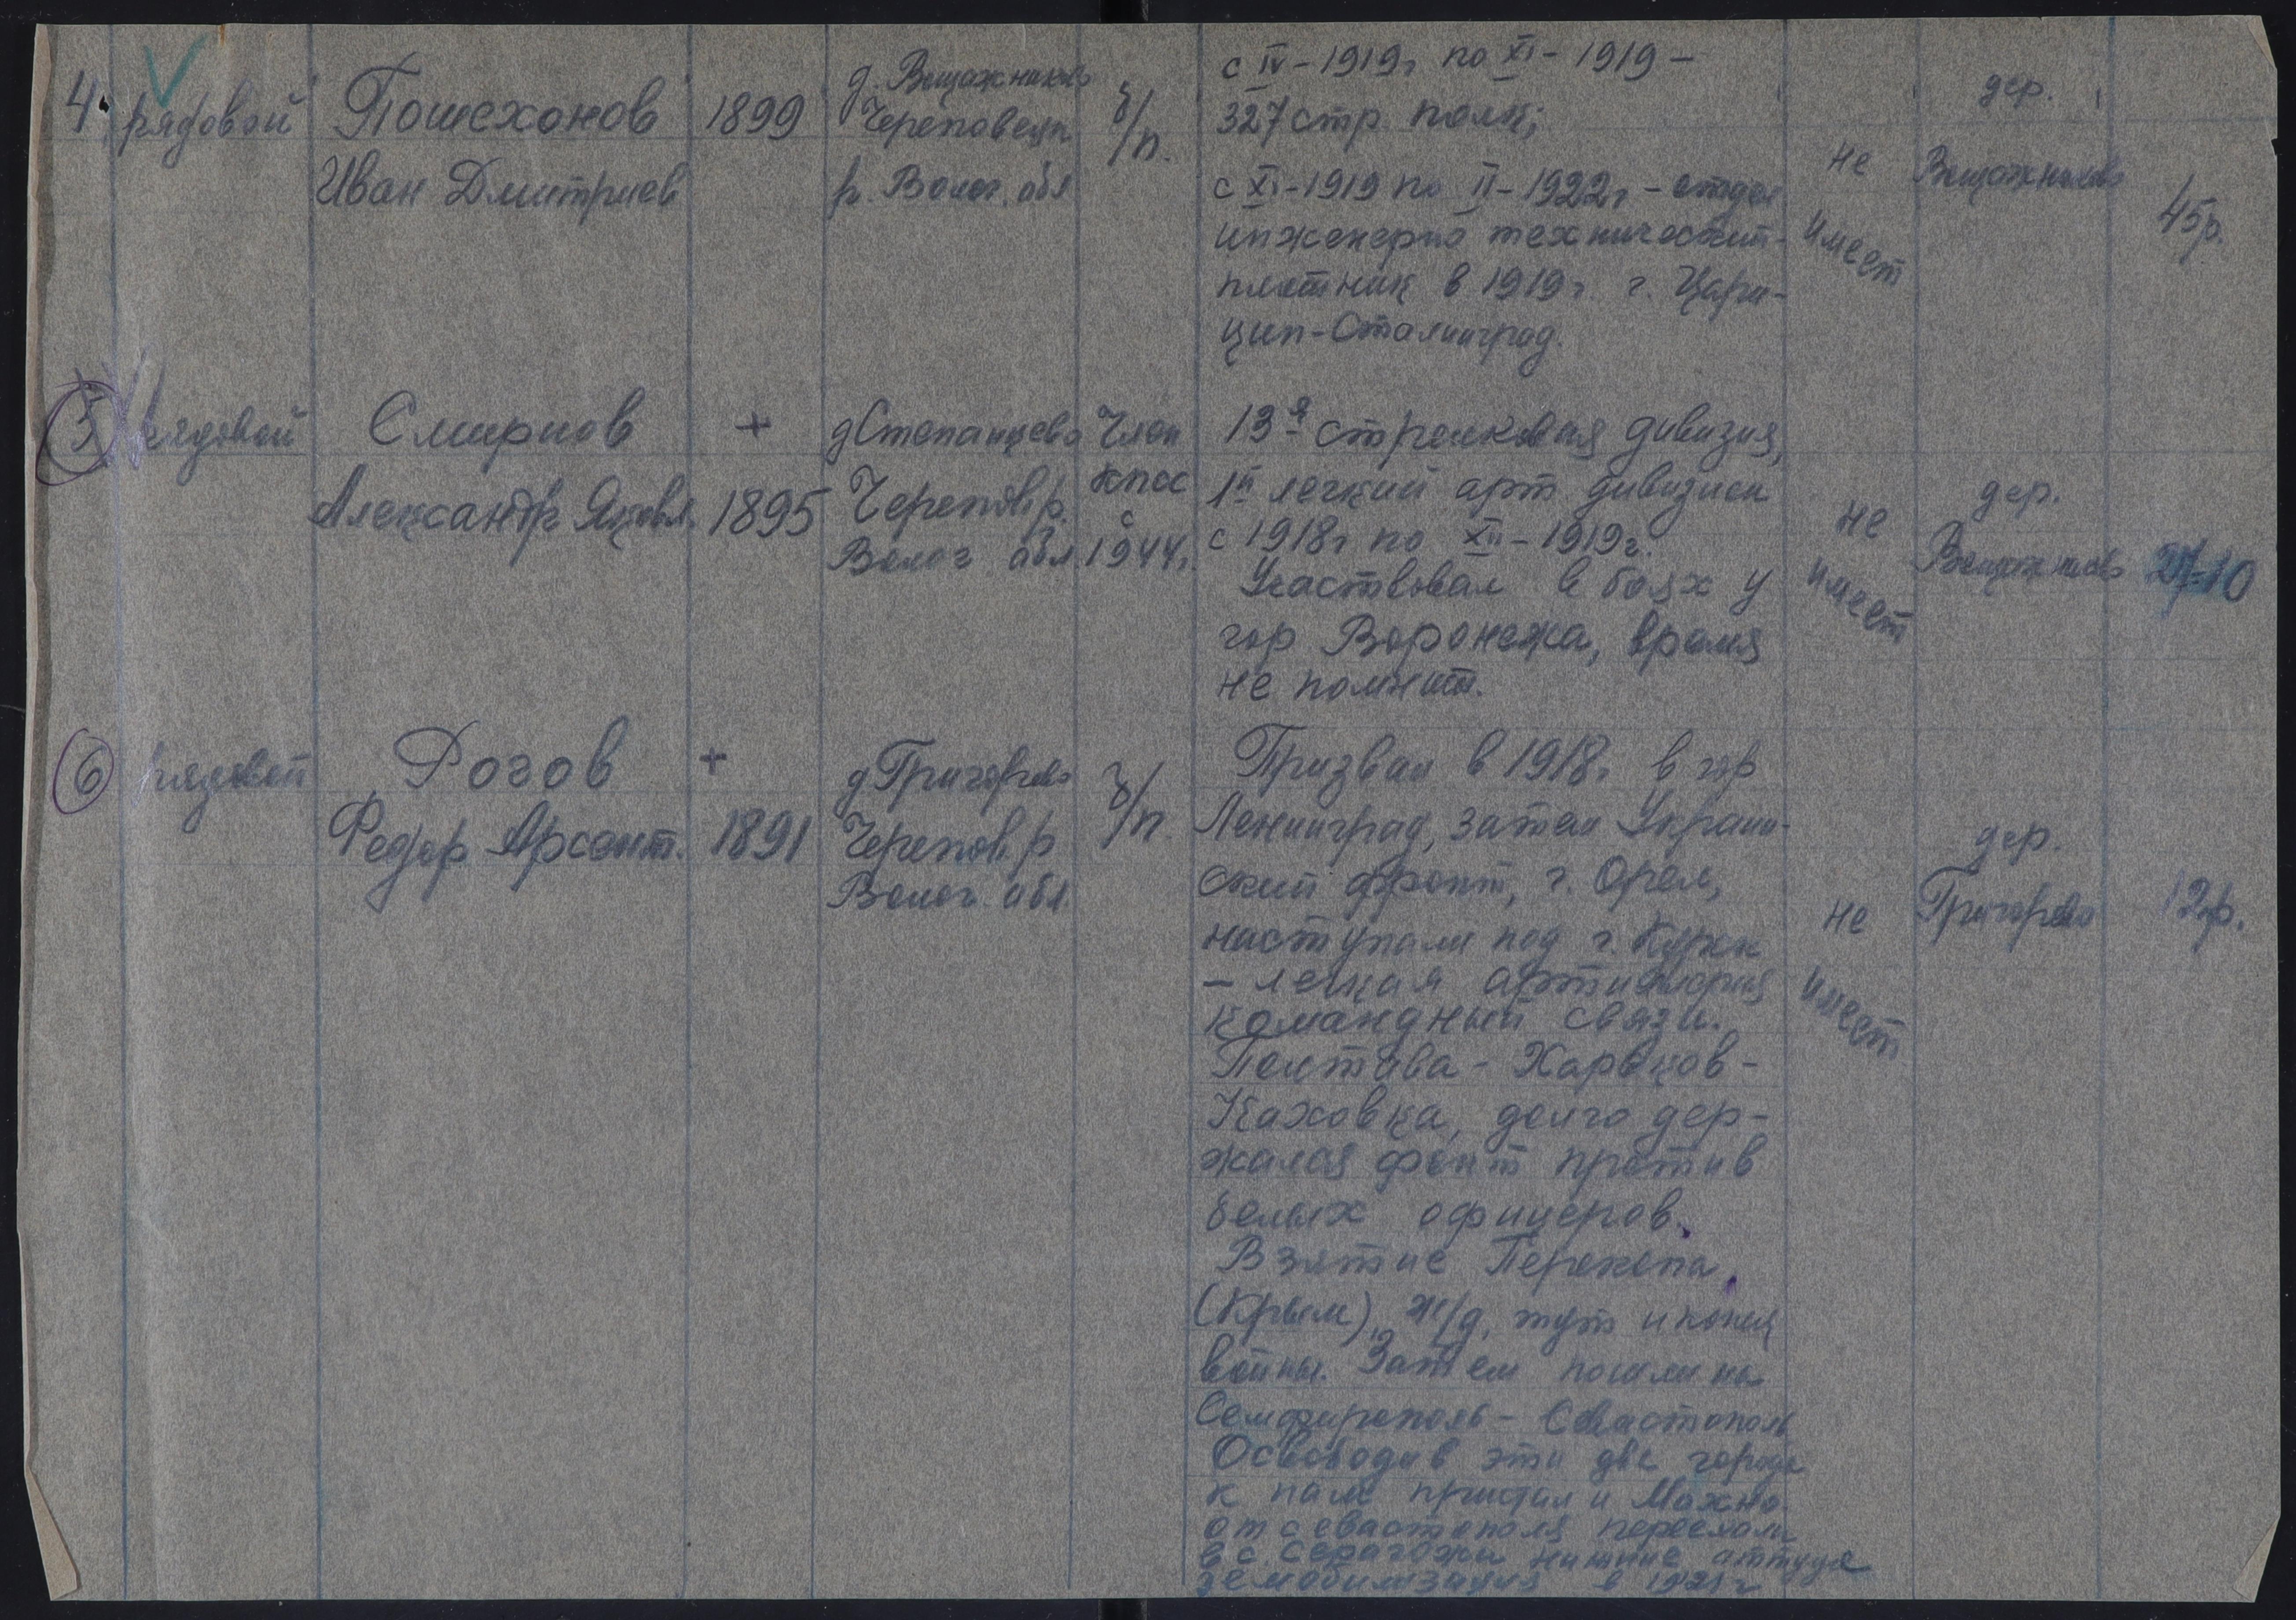 4. рядовой
Пошехонов
Иван Дмитриев
1899
д. Вощажниково
Череповецк
р. Волог. обл
б/п.
с IV-1919г по XI-1919-
327 стр. полк;
с XI-1919 по II-1922г - отдел
инженерно технический-
плотник в 1919г. г. Цари-
цин-Сталинград.
не
имеет
дер.
Вощажниково
45р.
5 рядовой
Смирнов
Александр Яковл.
+
1895
д Степанцево
Черепов р.
Волог обл
Член
КПСС
с
1944г.
13я стрелковая дивизия,
1й легкий арт дивизион
с 1918г по XII-1919г.
Участвовал в боях у
гор Воронежа, время
не помнит.
не
имеет
дер.
Вощажниково
27=10
6 рядовой
Рогов
Федор Арсент.
+
1891
д Григорево
Черепов. р
Волог. обл.
б/п.
Призван в 1918г. в гор
Ленинград, затем Украин-
ский фронт, г. Орел,
наступали под г. Курск
- легкая артиллерия
командный связи.
Полтава - Харьков -
Каховка, долго дер-
жался фонт против
белых офицеров.
Взятие Перекопа
(Крым) ж/д, тут и конец
войны. Затем пошли на
Семфирополь - Севастополь
Освободив эти два города
к нам пристал и Махно.
от севастополя переехали
в с. Серагозы нижние, оттуда
демобилизация в 1921г
не
имеет
дер.
Григорево
12р.